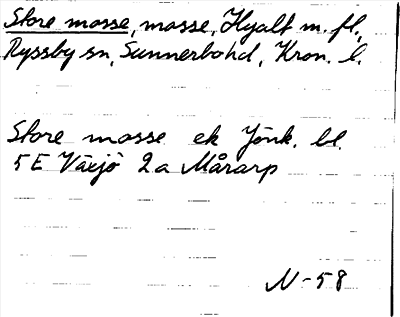 Store mosse, mosse, Hyalt m. fl.,
Ryssby sn, Sunnerbo hd, Kron. l.
Store mosse ek Jönk. bl.
5 E Växjö 2a Mårarp
N-58